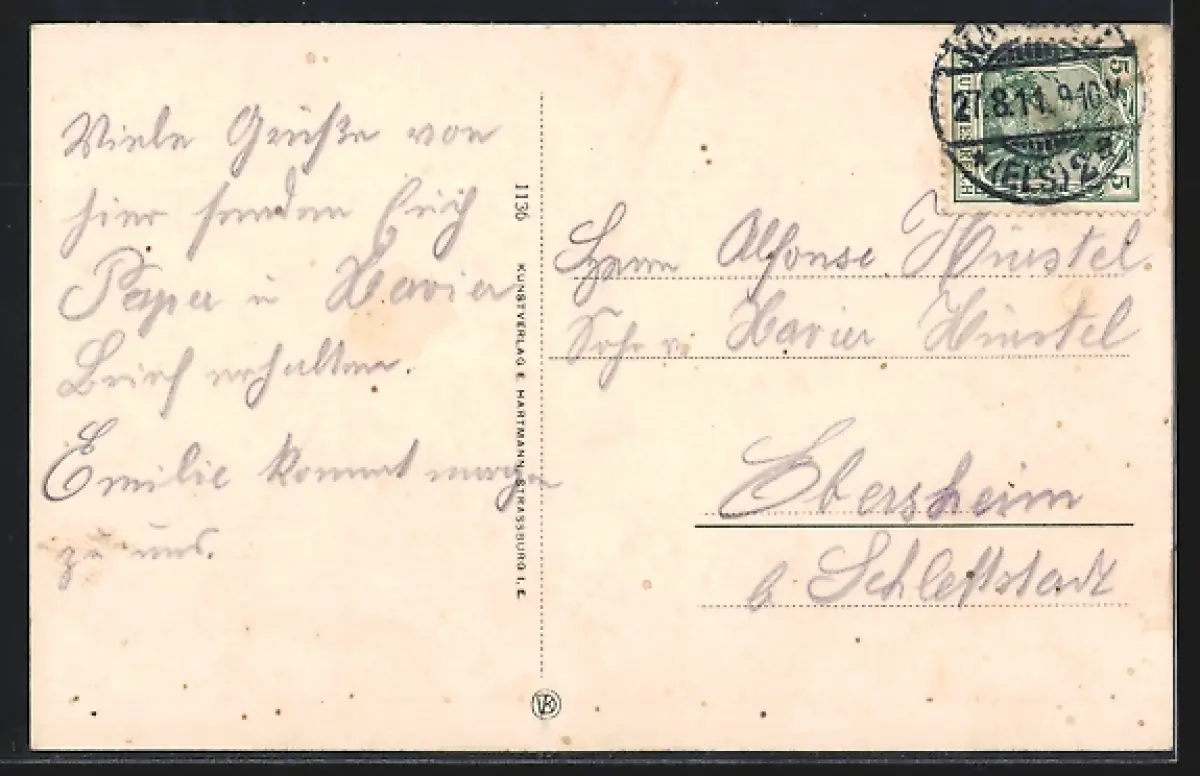 Viele Grüße von
hier senden Euch
Papa u Xavier
Brief erhalten.
Emilie kommt morgen
zu uns.
1136 KUNSTVERLAG E. HARTMANN, STRASSBURG I. E.
27.8.11. 9-10V
*(ELS.)2a
5
5
Herrn Alfonse
Sohn v. Xavier
Ebersheim
b Schlettstadt